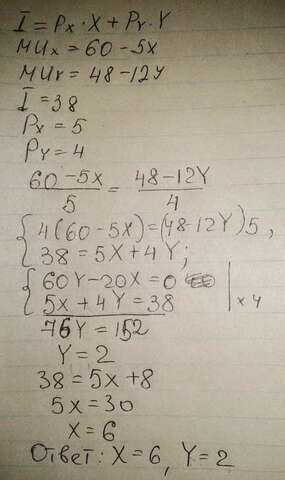 I = Px · X + Py · Y
MUx = 60 - 5X
MUY = 48 - 12Y
I = 38
Px = 5
Py = 4
60-5X/5 = 48-12Y/4
{ 4(60-5X) = (48-12Y)5,
38 = 5X + 4Y;
{ 60Y - 20X = 0
5X + 4Y = 38 | x 4
76Y = 152
Y = 2
38 = 5X + 8
5X = 30
X = 6
Ответ: X = 6, Y = 2